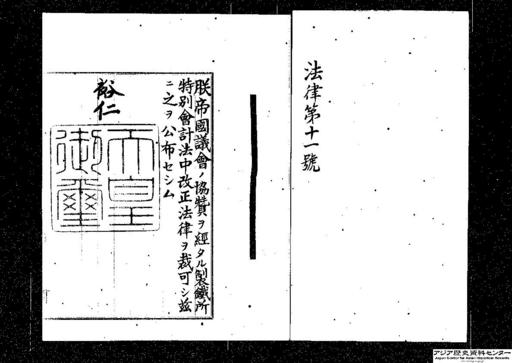 法律第十一號
朕帝國議會ノ協贊ヲ經タル製鐵所
特別會計法中改正法律ヲ裁可シ茲
ニ之ヲ公布セシム
裕仁
天皇
御璽
アジア歴史資料センター
Japan Center for Asian Historical Records